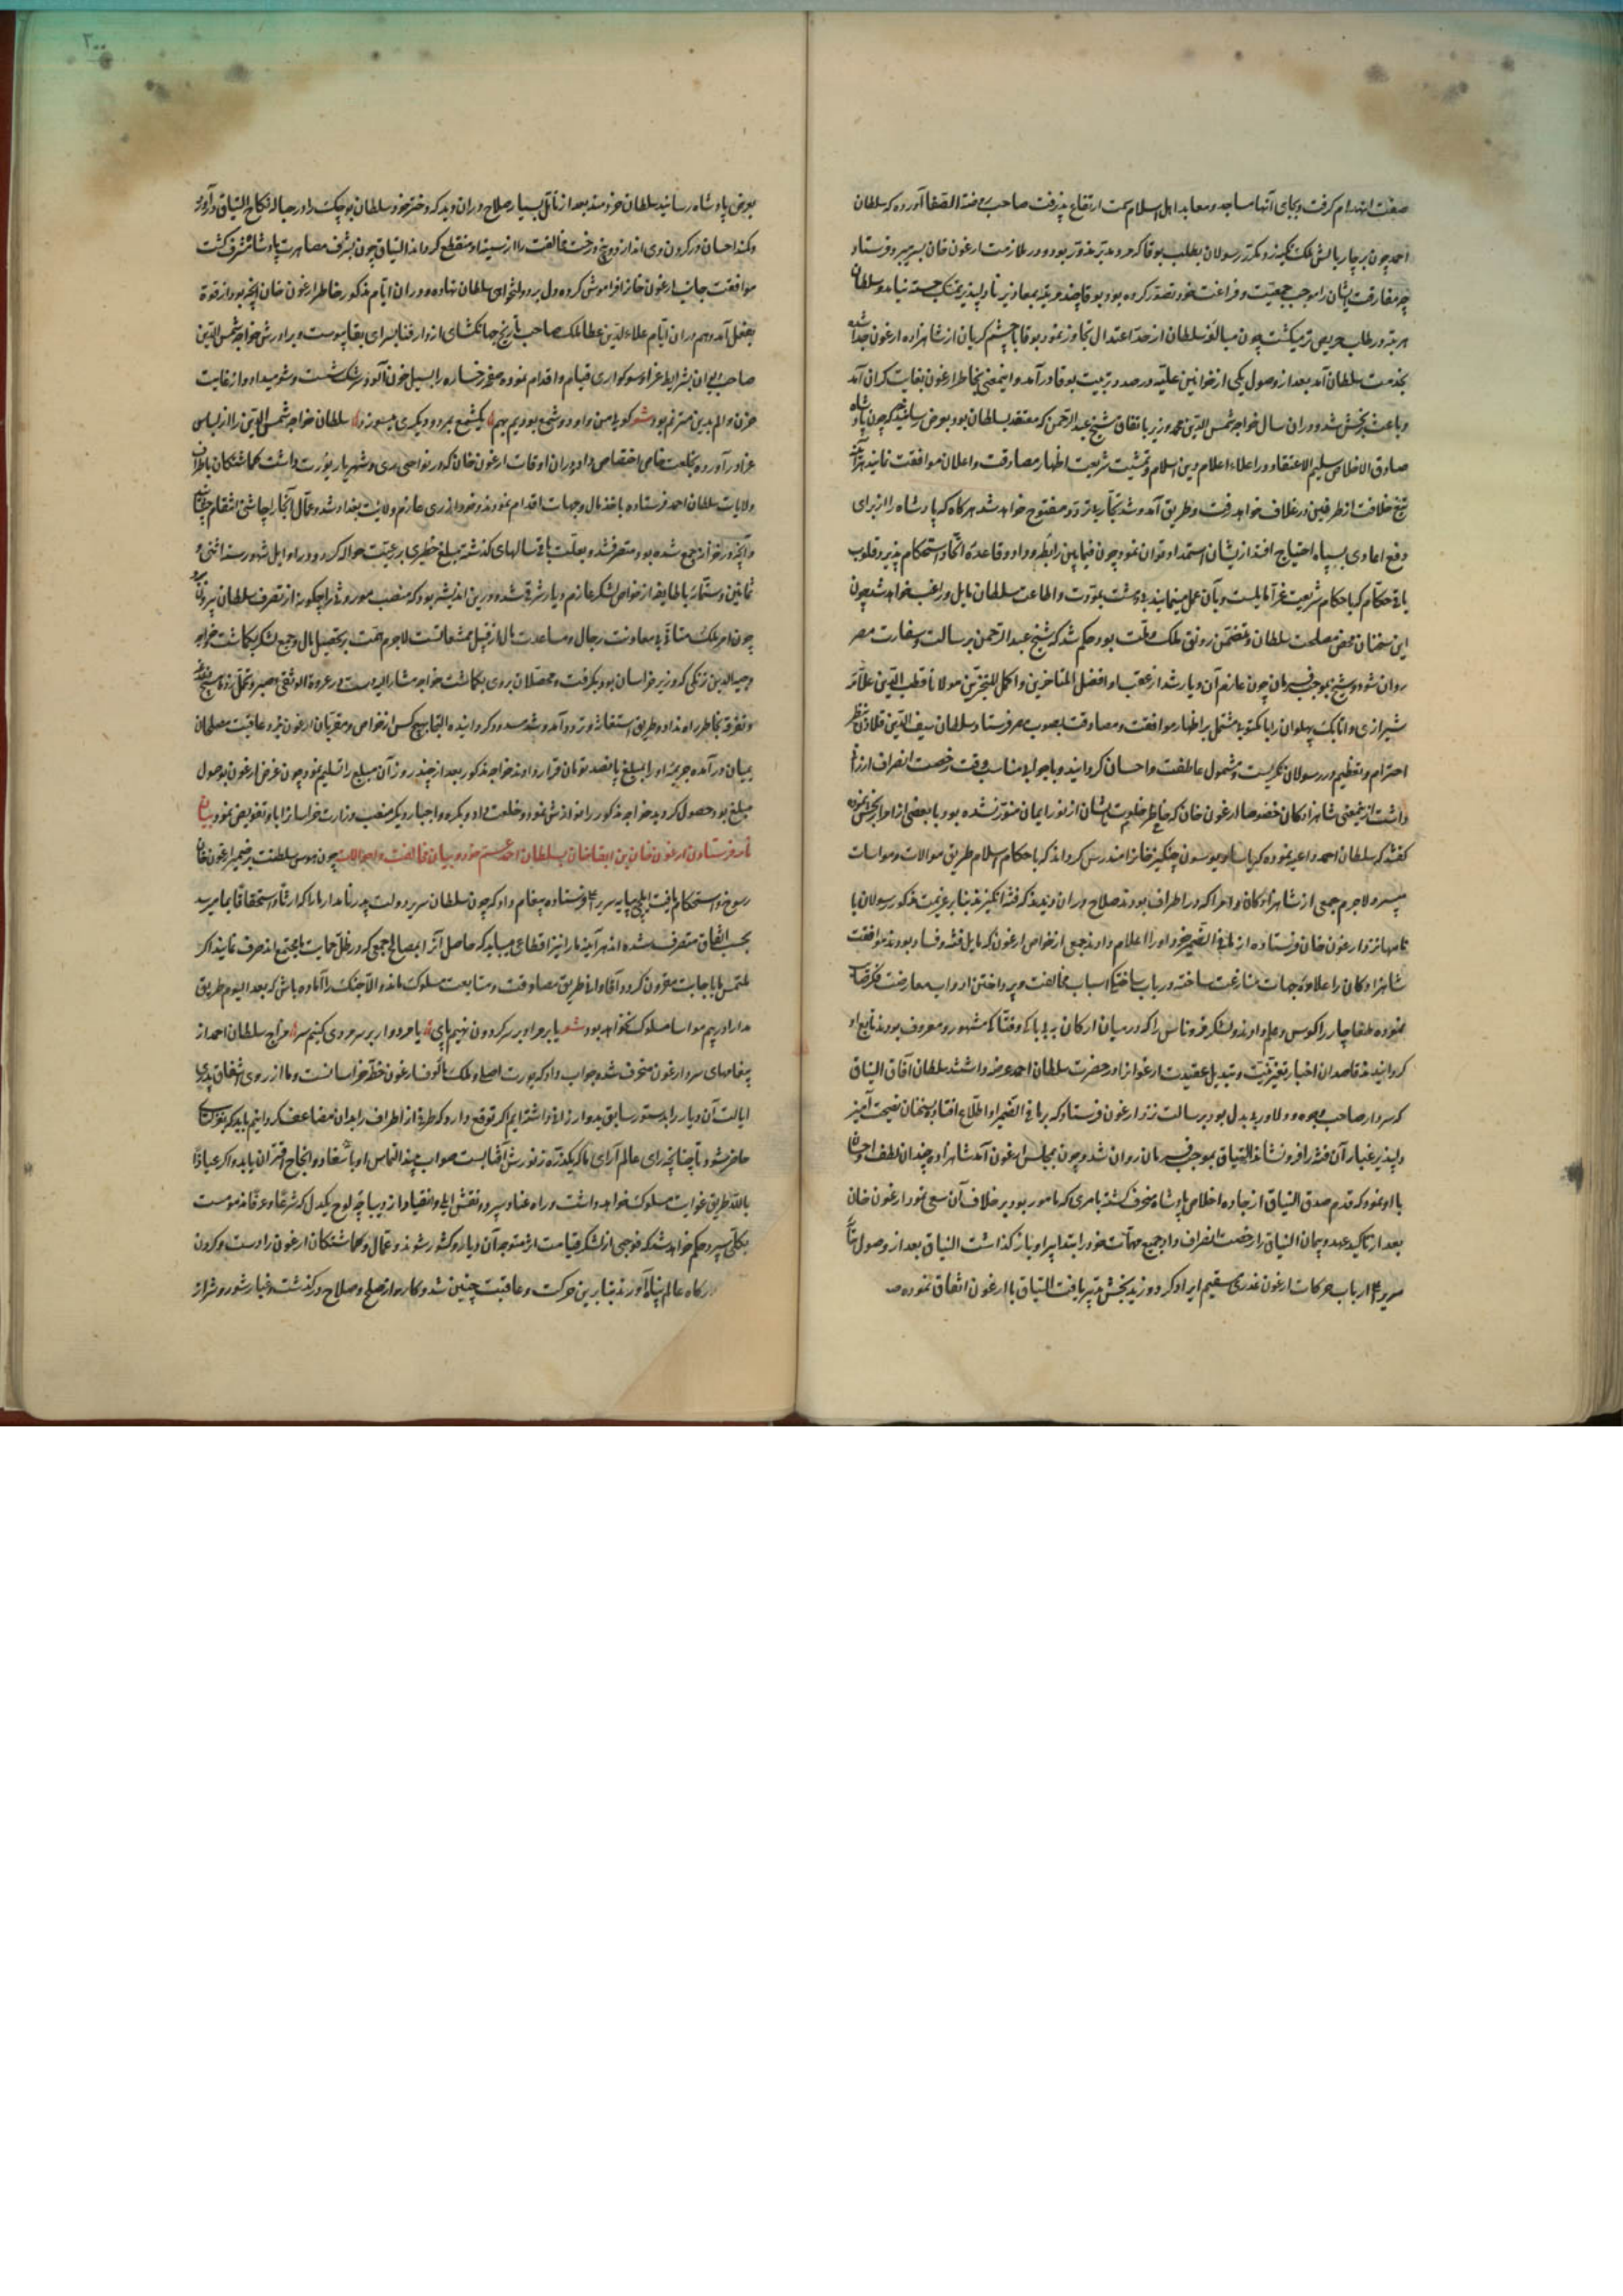 صفت انهدام گرفت و بجای آنها مساجد و معابد اهل اسلام سمت ارتفاع پذرفت صاحب روضة الصفا آورده که سلطان
احمد چون بر چار بالش ملک تکیه زد مکرر رسولان بطلب بوقا که مرد مدبر بود و در ملازمت ارغون خان بسر میبرد فرستاد
چه مفارقت ایشان را موجب جمعیت و فراغت خود تصور کرده بود و بوقا چند مرتبه بمعاذیر نادلپذیر تمسک جسته نیامد و سلطان
هر مرتبه در طلب حریص تر میکشت چون مبالغه سلطان از حد اعتدال تجاوز نمود بوقا با چشم کریان از شاهزاده ارغون جدا شده
بخدمت سلطان آمد بعد از وصول یکی از خواتین علیه در صدد تربیت بوقا درآمد و اینمعنی بخاطر ارغون بغایت کران آمد
و باعث رنجش شد و در آن سال خواجه شمس الدین محمد وزیر باتفاق شیخ عبد الرحمن که معتقد سلطان بود بعرض رسانید که چون پادشاه
صادق الاخلاص سلیم الاعتقاد در اعلاء اعلام دین اسلام و تمشیت شریعت اظهار مصادقت و اعلان موافقت نمایند هرآینه
تیغ خلافت از طرفین در غلاف خواهد رفت و طریق آمد و شد تجار و تردد مفتوح خواهد شد هرکاه که پادشاه را از برای
دفع اعادی بسپاه احتیاج افتد از یشان استمداد توان نمود چون فیمابین رابطه وداد و قاعده اتحاد استحکام پذیرد قلوب
باقی حکام که باحکام شریعت غرا مایلست و بآن عمل مینمایند بمودت و اطاعت سلطان مایل و راغب خواهد شد چون
این سخنان محض مصلحت سلطان و متضمن رونق ملک و ملت بود حکم شد که شیخ عبد الرحمن برسالت و سفارت مصر
روان شود و شیخ بموجب فرمان چون عازم آن دیار شد از عقب او افضل المتاخرین و اکمل المتبحرین مولانا قطب الدین علامه
شیرازی و اتابک پهلوان را با مکتوب مشتمل بر اظهار موافقت و مصادقت بصوب مصر فرستاد و سلطان سیف الدین قلاون بنظر
احترام و تعظیم در رسولان نکریست و مشمول عاطفت و احسان کردانید و با جواب مناسب وقت رخصت انصراف ارزانی
داشت از ینمعنی شاهزادکان خصوصا ارغون خان که خاطر ظلمت ایشان از نور ایمان منور نشده بود و با بعضی از امرا رنجش نموده
کفتند که سلطان احمد داعیه نموده که یاسا و یوسون چنکیز خانرا مندرس کرداند که باحکام اسلام طریق موالات و مواسات
میسپرد لاجرم جمعی از شاهزادکان و امرا که در اطراف بودند صلاح در آن دیدند که فتنه انکیزند بنابر عزیمت مذکور رسولان با
نامها نزد ارغون خان فرستاده از ما فی الضمیر خود او را اعلام دادند جمعی از خواص ارغون که مایل فتنه و فساد بودند موافقت
شاهزادکان را علاوه جهات منازعت ساخته در باب ساختکی اسباب مخالفت و پرداختن ابواب معارضت
نموده طغاجار را کوس و علم دادند و لشکر قروناس را که در میان ارکان به بی باکی و فتاکی مشهور و معروف بودند تابع او
کردانیدند قاصدان اخبار تغیر نیت و تبدیل عقیدت ارغون را در حضرت سلطان احمد عرضه داشتند سلطان آقای الیناق
که سردار صاحب وجود و دلاور بی بدل بود برسالت نزد ارغون فرستاد که بر ما فی الضمیر او اطلاع افتاد و بسخنان نصیحت آمیز
دلپذیر غبار آن فتنه را فرو نشاند الیناق بموجب فرمان روان شد و چون بمجلس ارغون آمد شاهزاده چندان لطف و احسان
با او نمود که قدم صدق الیناق از جاده اخلاص پادشاه منحرف کشته بامری که مامور بود بر خلاف آن سعی نمود ارغون خان
بعد از تاکید عهد و پیمان الیناق را رخصت انصراف داد جمیع مهمات خود را بتدابیر او باز کذاشت الیناق بعد از وصول بپایه
سریر از باب حرکات ارغون عذری سقیم ایراد کرد الیناق با ارغون اتفاق نموده
بعرض پادشاه رسانید سلطان خردمند بعد از تامل بسیار صلاح در آن دید که دختر خود سلطان کوچک را در حباله نکاح الیناق در آورد
و کمند احسان در کردن وی انداز و بیخ درخت مخالفت را از سینه او منقطع کرداند الیناق چون بشرف مصاهرت پادشاه مشرف کشت
موافقت جانب ارغون خانرا فراموش کرده دل بر دولتخواهی سلطان نهاده و در آن ایام مذکور خاطر ارغون خان آنچه بود از قوه
بفعل آمد و هم در آن ایام علاء الدین عطا ملک صاحب تاریخ جهانکشای از دار فنا بسرای بقا پیوست و برادرش خواجه شمس الدین
صاحب دیوان بشرایط عزا و سوکواری قیام و اقدام نمود و صفحه رخساره را بسیل خون آلود سرشک شست و شو میداد و از غایت
حزن و الم بدین مترنم بود شعر کویی من و او دو شمع بودیم بهم یکشمع بمرد و دیکری میسوزد سلطان خواجه شمس الدین را از لباس
عزا در آورده بخلعت خاص اختصاص داد در آن اوقات ارغون خان که در نواحی ری و شهریار یورت داشت کماشتکان باطراف
ولایات سلطان احمد فرستاده باخذ مال و جهات اقدام نمودند و خود از ری عازم ولایت بغداد شد و عمال آنجا را چاشنی انتقام چشانیده
و آنچه در خزانه جمع شده بود متصرف شد و بعلت باقی سالهای کذشته مبلغ خطیری بر رعیت حواله کرد و در اوایل شهور سنه اثنی و
ثمانین و ستمائه با طایفه از خواص لشکر عازم دیار شرقی شد و درین اندیشه بود که منصب موروثی را چکونه از تصرف سلطان بیرون برد
چون امر ملک متاتی بی معاونت رجال و مساعدت مال از قبیل ممتنعات است لاجرم همت بر تحصیل مال و جمع لشکر بکماشت خواجه
وجیه الدین زنکی که وزیر خراسان بود بکرفت و محصلان بر وی بکماشت خواجه مشار الیه دست در عروة الوثقی صبر و تحمل زده هیچ
و تفرقه بخاطر راه نداد و طریق استغاثه و تردد آمد و شد مسدود کردانیده التجا بهیچ کس از خواص و مقربان ارغون نبرد عاقبت مصلحان
بمیان در آمده جریمه او را بمبلغ پانصد تومان قرار دادند خواجه مذکور بعد از چند روز آن مبلغ را تسلیم نمود چون غرض ارغون بوصول
مبلغ بود حصول کردید خواجه مذکور را نوازش نموده و خلعت داد و بکره و اجبار دیکر منصب وزارت خراسانرا باو تفویض نمود بیان
نامه فرستادن ارغون خان بن ابقا خان بسلطان احمد عم خود و بیان مخالفت و احوالات چون هوس سلطنت بر ضمیر ارغون خان
رسوخ و استحکام یافت ایلچی بپایه سریر فرستاده پیغام داد که چون سلطان سریر دولت پدر نامدار ما را که ارثا و استحقاقا بما میرسد
بحسب اتفاق متصرف شده اند هرآینه ما را نیز اقطاعی میباید که حاصل آنرا بمصالح جمعی که در ظل حمایت ما مجتمع اند صرف نمایند اکر
ملتمس ما باجابت مقرون کردد آقا و اینی طریق مصادقت و متابعت مسلوک ماند و الا جنک را آماده باش که بعد الیوم طریق
مدارا و رسم مواسا مسلوک نخواهد بود شعر یا بر مراد بر سر کردون نهیم پای یا مردوار بر سر مردی کنیم سر مزاج سلطان احمد از
پیغامهای سرد ارغون منحرف شد و جواب داد که یورت اصلی و ملک مالوف ارغون خطه خراسانست و ما از روی اشفاق پدری
ایالت آن دیار را بدستور سابق بدو ارزانی داشته ایم اکر توقع دارد که طرفی از اطراف را بدان مضاعف کردانیم باید که بقوریلتای
حاضر شود تا چنانچه رای عالم آرای ما که یکذره ز نورش آفتابست صواب بیند التماس او باسعاد و انجاح اقتران یابد و اکر عیاذا
بالله طریق غوایت مسلوک خواهد داشت و راه عناد سپرد و نقش ایلی و انقیاد از دیباچه لوح یکدلی که شرعا و عرفا لازمست
بکلی سپرد حکم خواهد شد که فوجی از لشکر قیامت اثر متوجه آن دیار و کشور شوند و عمال و کماشتکان ارغون را دست و کردن
درکاه عالم پناه آورند بنابرین حرکت و عاقبت چنین شد و کار او از صلح و صلاح درکذشت و غبار شور و شرار